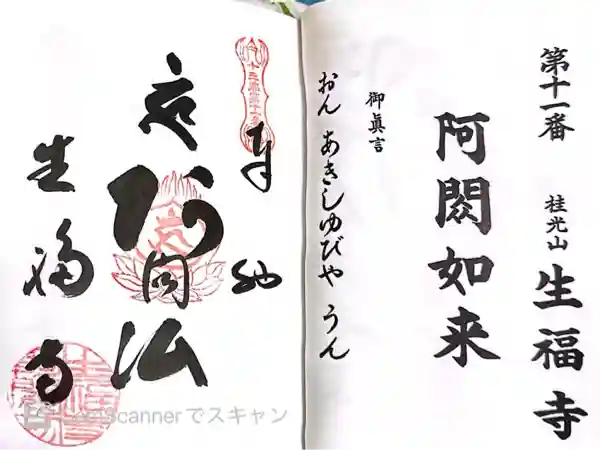 第十一番
桂光山
生福寺
阿閦如来
御眞言
おん あきしゅびや うん
奉納
阿閦仏
生福寺
CamScannerでスキャン